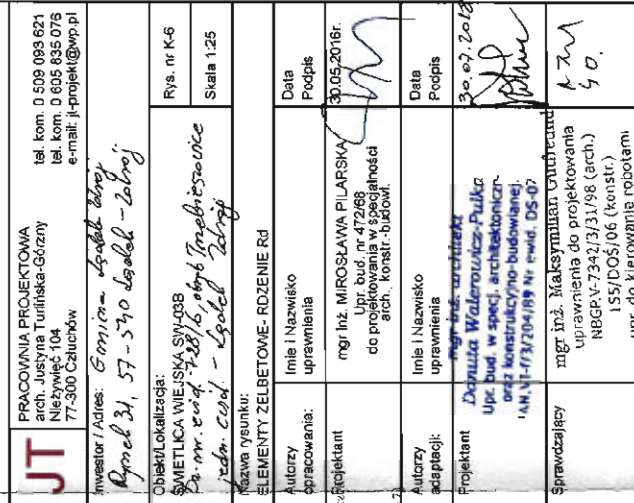 JT
PRACOWNIA PROJEKTOWA
arch. Justyna Turlińska-Górzny
Nieżywięć 104
77-300 Człuchów
tel. kom. 0 509 093 621
tel. kom. 0 605 835 076
e-mail: jt-projekt@wp.pl
Inwestor / Adres: Gmina Lądek Zdrój
Rynek 31, 57-540 Lądek - Zdrój
Obiekt/Lokalizacja:
ŚWIETLICA WIEJSKA SW-03B
Dz. nr. ewid. 728/6, obręb Trzebieszowice
jedn. ewid - Lądek Zdrój
Rys. nr K-6
Skala 1:25
Nazwa rysunku:
ELEMENTY ŻELBETOWE- RDZENIE Rd
Autorzy opracowania:
Imię i Nazwisko
uprawnienia
Data
Podpis
Projektant
mgr inż. MIROSŁAWA PILARSKA
Upr. bud. nr 472/68
do projektowania w specjalności
arch. konstr.-budowl.
30.05.2016r.
Autorzy adaptacji:
Imię i Nazwisko
uprawnienia
Data
Podpis
Projektant
mgr inż. architekt
Danuta Walerowicz-Pulka
Upr. bud. w specj. architektoniczn-
oraz konstrukcyjno-budowlanej.
UAN.VT-f/3/204/89 Nr ewid. DS-07
30.07.2018
Sprawdzający
mgr inż. Maksymilian
uprawnienia do projektowania
NBGP.V-7342/3/31/98 (arch.)
155/DOŚ/06 (konstr.)
upr. do kierowania robotami